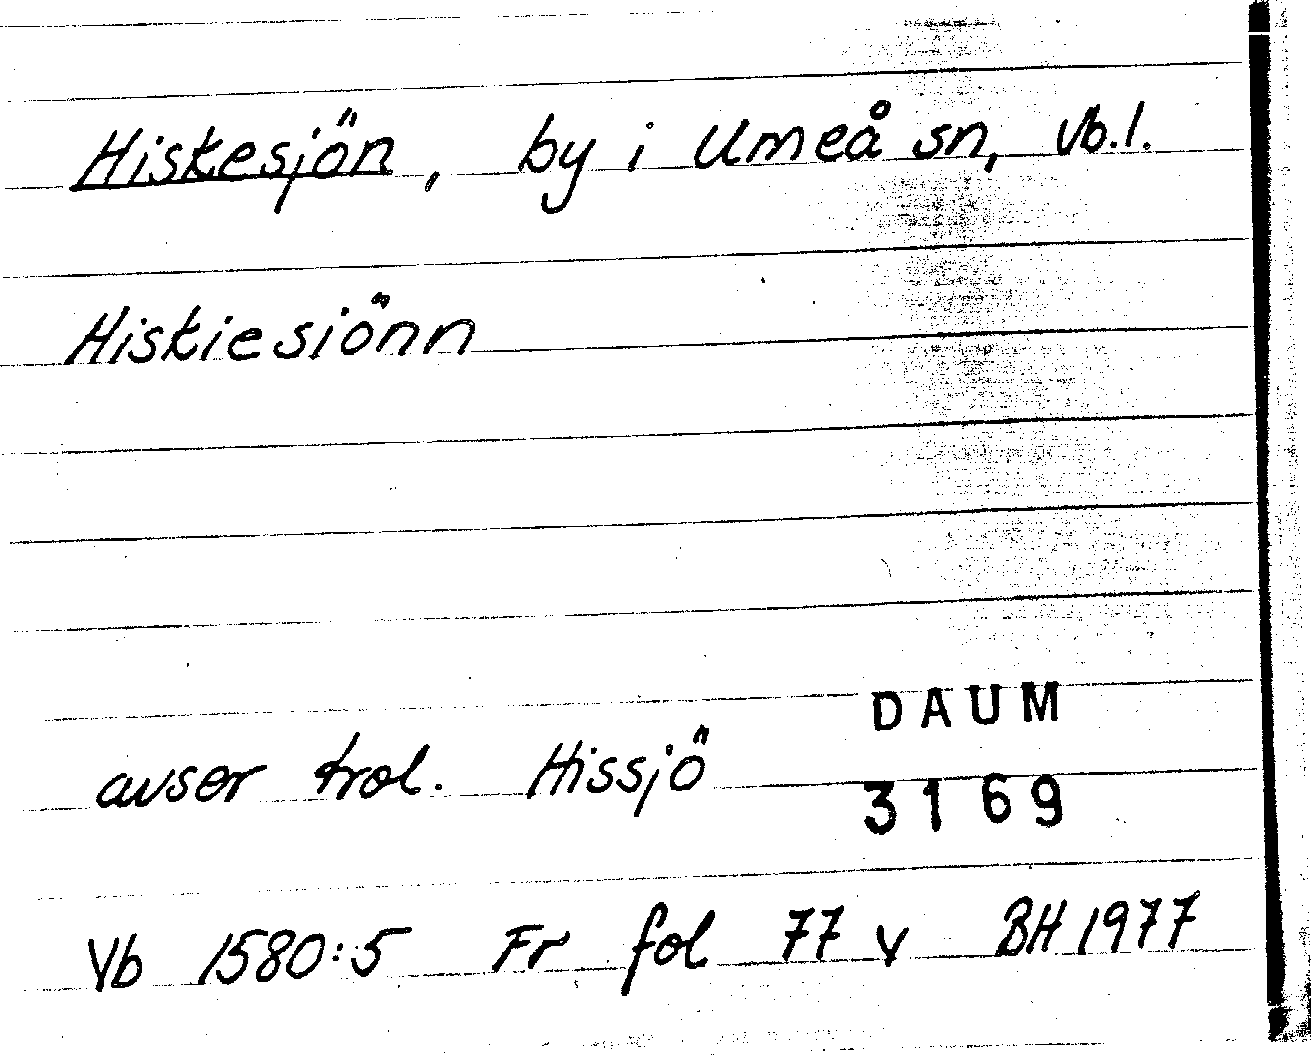 Hiskesjön, by i Umeå sn, Vb.l.
Hiskiesiönn
DAUM
avser trol. Hissjö
3169
Vb 1580:5 Fr fol 77 v BH 1977